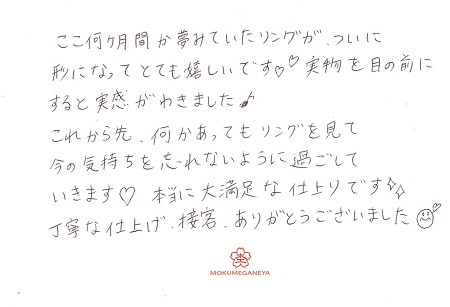 ここ何ヶ月間か夢みていたリングが、ついに
形になってとても嬉しいです♡♡実物を目の前に
すると実感がわきました♪
これから先、何かあってもリングを見て
今の気持ちを忘れないように過ごして
いきます♡ 本当に大満足な仕上りです✧✧
丁寧な仕上げ、接客、ありがとうございました☺♡
MOKUMEGANEYA